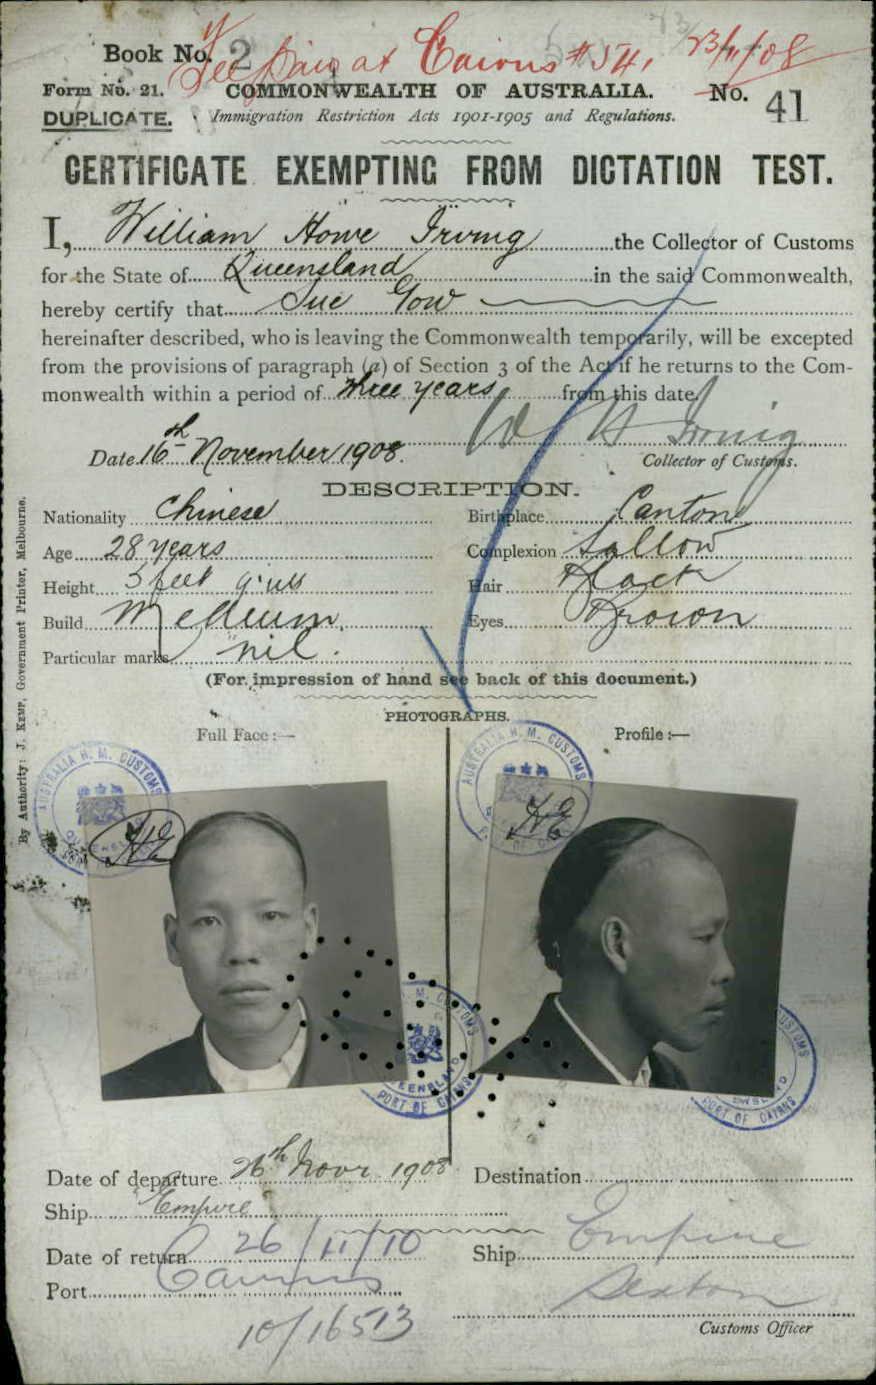 Book No. 2
Fee paid at Cairns #54. 23/11/08
Form No. 21. COMMONWEALTH OF AUSTRALIA. No. 41
DUPLICATE. Immigration Restriction Acts 1901-1905 and Regulations.
CERTIFICATE EXEMPTING FROM DICTATION TEST.
I, William Howe Irving the Collector of Customs
for the State of Queensland in the said Commonwealth,
hereby certify that Sue Gow
hereinafter described, who is leaving the Commonwealth temporarily, will be excepted
from the provisions of paragraph (a) of Section 3 of the Act if he returns to the Com-
monwealth within a period of three years from this date.
W H Irving
Date 16th November 1908. Collector of Customs.
DESCRIPTION.
Nationality Chinese Birthplace Canton
Age 28 years Complexion Sallow
Height 5 feet 9 ins Hair Black
Build Medium. Eyes Brown
Particular marks nil.
(For impression of hand see back of this document.)
PHOTOGRAPHS.
Full Face:— Profile:—
AUSTRALIA H. M. CUSTOMS
AUSTRALIA H. M. CUSTOMS
PORT OF CAIRNS
H. M. CUSTOMS
QUEENSLAND
PORT OF CAIRNS
CUSTOMS
PORT OF CAIRNS
Date of departure 26th Novr 1908 Destination
Ship Empire
Date of return 26/11/10 Ship Empire
Port Cairns Sexton
10/16513 Customs Officer
By Authority: J. KEMP, Government Printer, Melbourne.